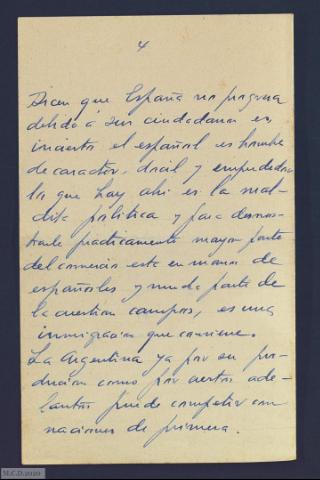 4
Dicen que España no progresa
debido á sus ciudadanos es
incierto el español es hombre
de caracter, docil y emprendedor
lo que hay ahi es la mal-
dita politica y para demos-
trarle practicamente mayor parte
del comercio esta en manos de
españoles y mucha parte de
la cuestion campos, es una
inmigracion que conviene.
La Argentina ya por su pro-
duccion como por ciertos ade-
lantos puede competir con
naciones de primera.
M.C.D.2020